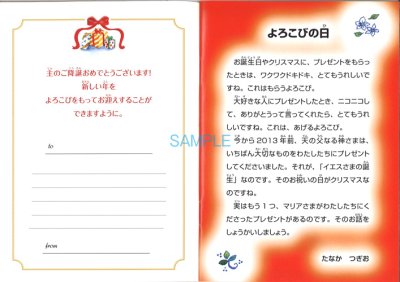 主のご降誕おめでとうございます!
新しい年を
よろこびをもってお迎えすることが
できますように。
to
from
SAMPLE
よろこびの日
お誕生日やクリスマスに、プレゼントをもらっ
たときは、ワクワクドキドキ、とてもうれしいで
すね。これはもらうよろこび。
大好きな人にプレゼントしたとき、ニコニコし
て、ありがとうって言ってくれたら、とてもうれ
しいですね。これは、あげるよろこび。
今から2013年前、天の父なる神さまは、
いちばん大切なものをわたしたちにプレゼント
してくださいました。それが、「イエスさまの誕
生」なのです。そのお祝いの日がクリスマスな
のですね。
実はもう1つ、マリアさまがわたしたちにく
ださったプレゼントがあるのです。そのお話を
しょうかいしましょう。
たなか つぎお